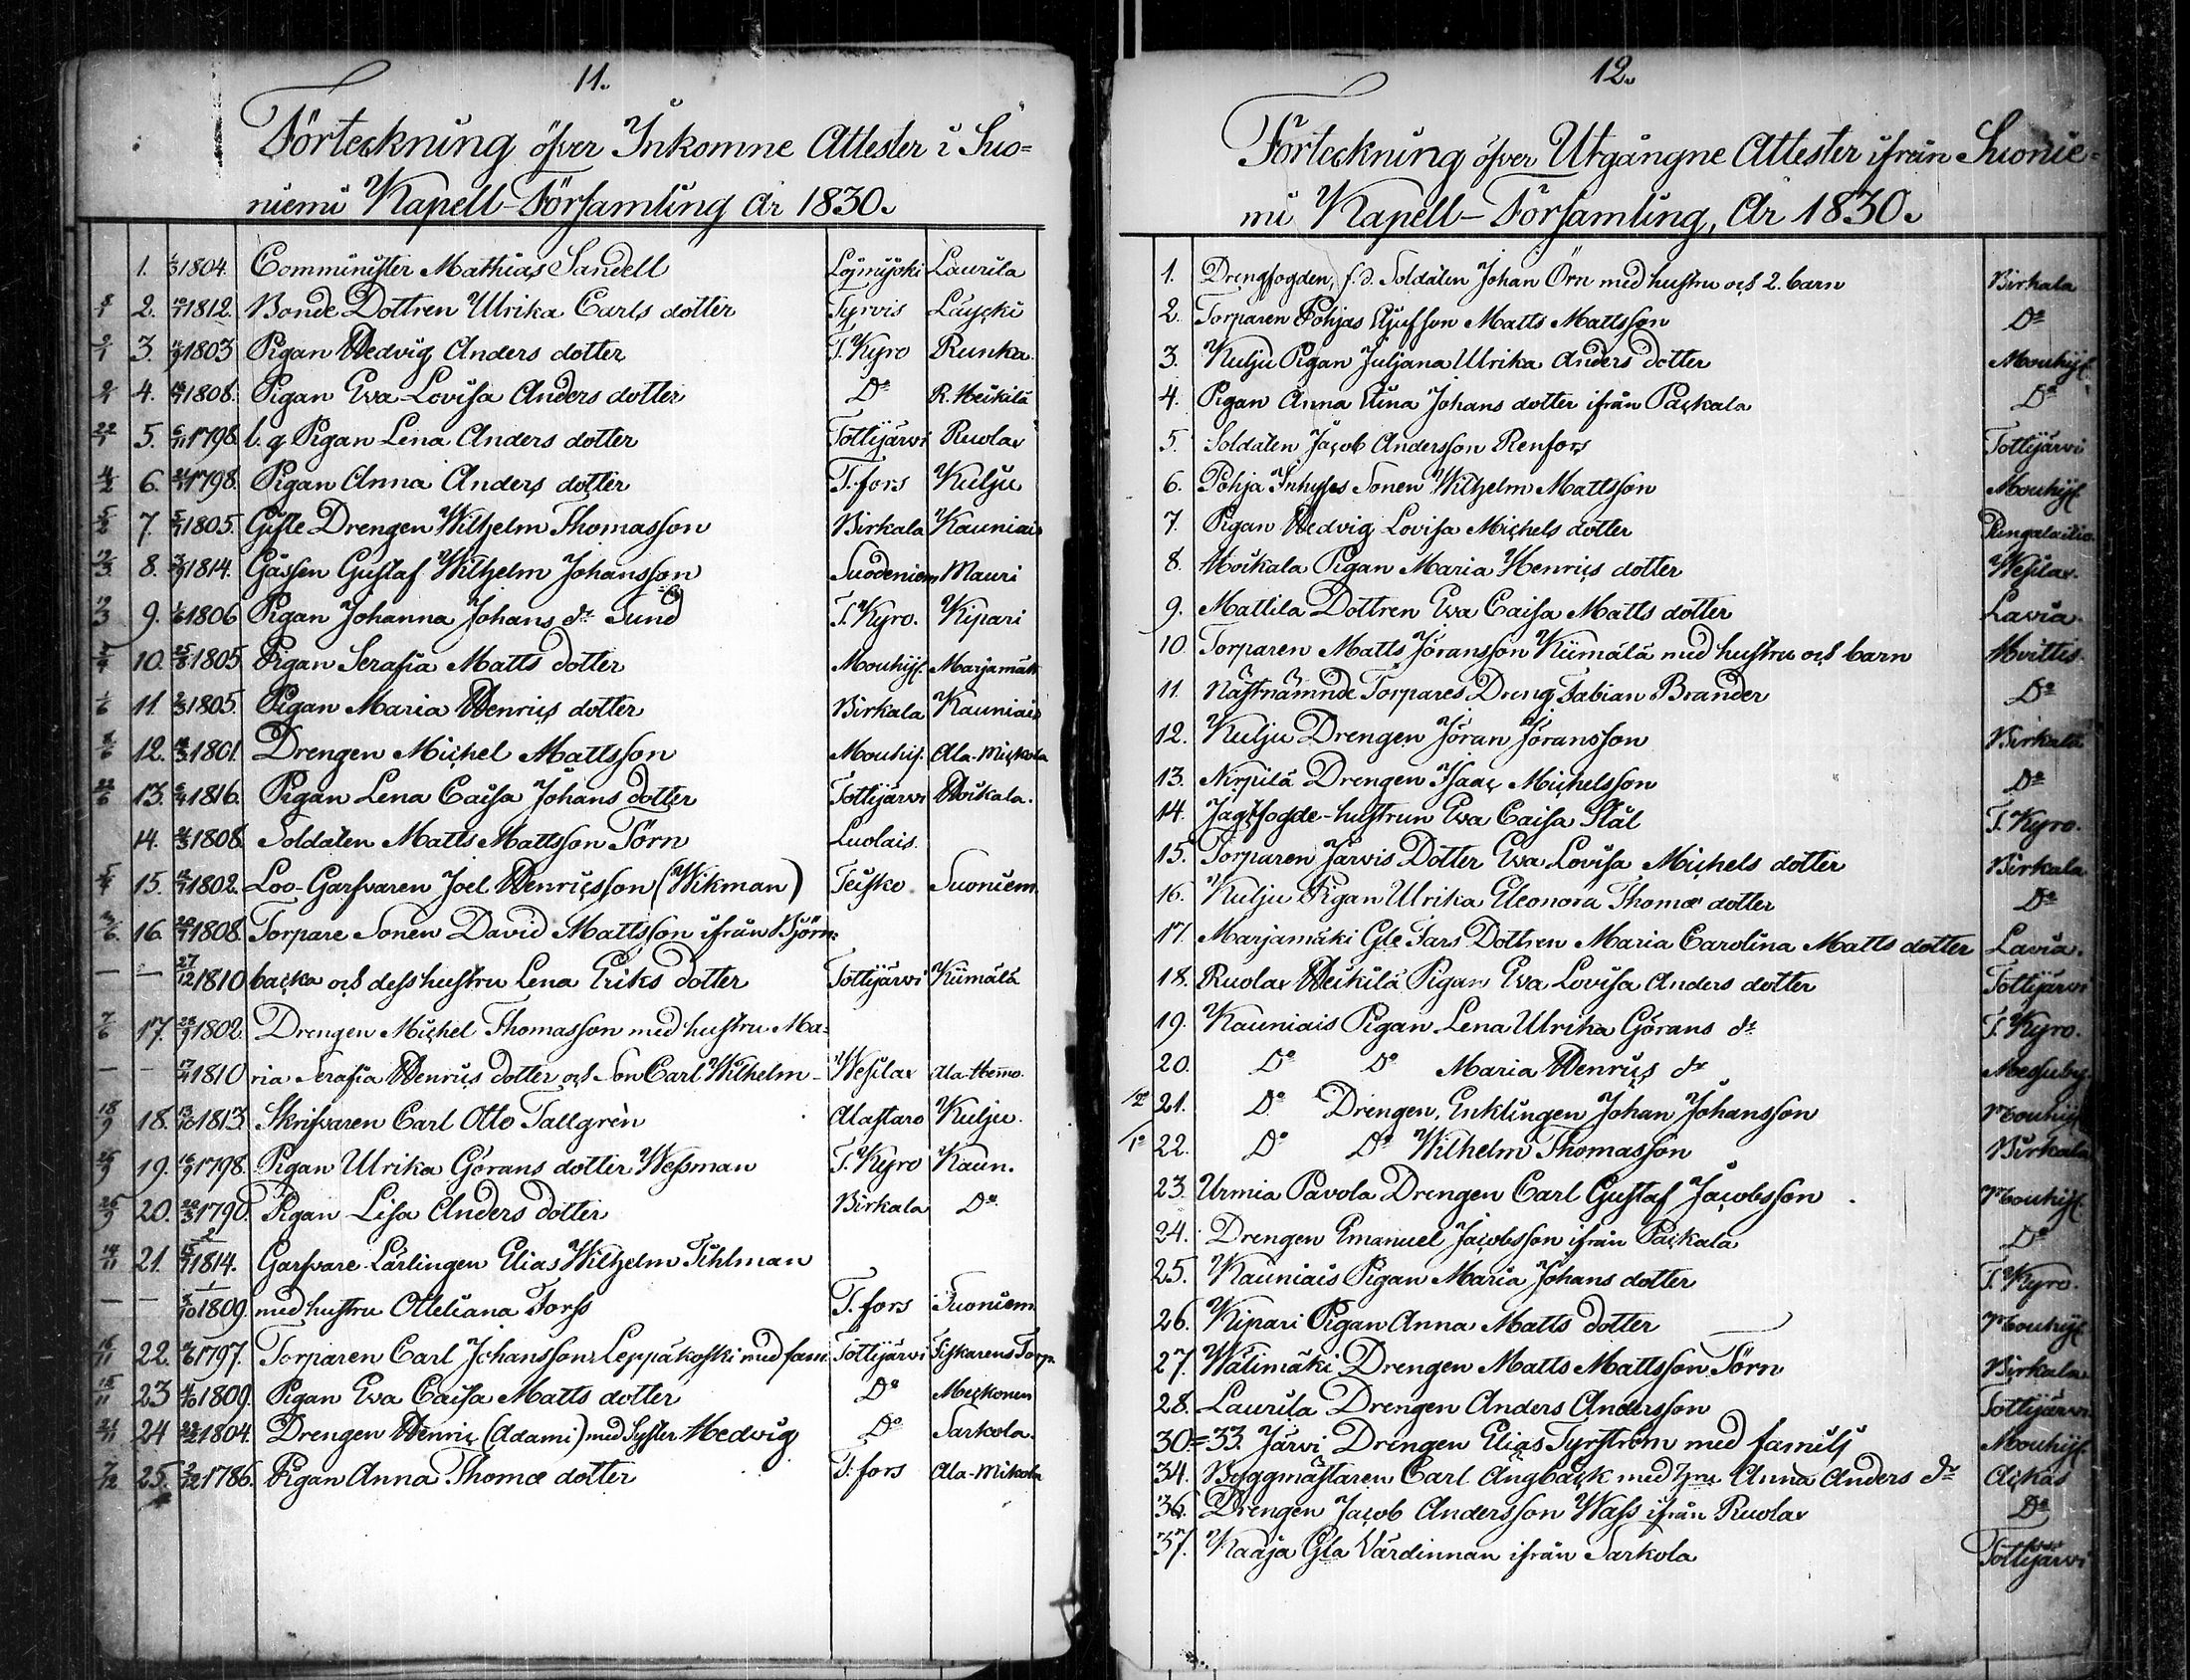 11.
Förteckning öfver Inkomne Attester i Suo=
niemi Kapell-Församling År 1830.
1. 1804. Comminister Mathias Sandell Loimijoki Laurila
2. 1812. Bonde Dottren Ulrika Carls dotter Tyrvis
3. 1803 Pigan Hedvig Anders dotter T. Kyro Runka.
4. 1808. Pigan Eva Lovisa Anders dotter Do R. Heikilä
22/1 5. 6/11 1798. l. q Pigan Lena Anders dotter Tottijärvi Ruolax
4/2 6. 1798. Pigan Anna Anders dotter T. fors Kulju
5/2 7. 1805. Gifte Drengen Wilhelm Thomasson Birkala Kauniais
8. 1814. Gåssen Gustaf Wilhelm Johansson Suodeniem Mauri
9. 1806 Pigan Johanna Johans dr Sund T. Kyro. Kipari
10. 25/8 1805 Pigan Serafia Matts dotter Mouhij. Marjamäk
1/6 11. 1805. Pigan Maria Henrics dotter Birkala Kauniais
8/6 12. 1801. Drengen Michel Mattsson Mouhij. Ala-Mickola
22/6 13. 1816. Pigan Lena Caisa Johans dotter Tottijärvi Hoikala.
14. 1808. Soldaten Matts Mattsson Törn Luolais
15. 1802. Loo-Garfvaren Joel Henricsson (Wikman) Teisko Suoniem.
16. 1808. Torpare Sonen David Mattsson ifrån Björn=
— — 27/12 1810 backa och dess hustru Lena Eriks dotter Tottijärvi Kiimälä
7/6 17. 28/9 1802. Drengen Michel Thomasson med hustru Ma=
— — 1810 ria Serafia Henrics dotter och Son Carl Wilhelm - Wesilax Ala-Hemmo.
18/9 18. 13/10 1813 Skrifvaren Carl Otto Tallgrèn Alastaro Kulju.
19. 1798. Pigan Ulrika Görans dotter Wessman T. Kyro Kaun.
20. 1790. Pigan Lisa Anders dotter Birkala Do
14/11 21. 1814. Garfvare-Lärlingen Elias Wilhelm Tihlman
— — 1809. med hustru Otteliana Forss T. fors Suoniem.
16/11 22. 1797. Torparen Carl Johansson Leppäkoski med fam. Tottijärvi Fiskarens Torp.
23 1809. Pigan Eva Caisa Matts dotter Do
24 1804. Drengen Henric (Adami) med Syster Hedvig Do Sarkola.
7/12 25. 1786. Pigan Anna Thomæ dotter T. fors Ala-Mikola
12.
Förteckning öfver Utgångne Attester ifrån Suonie=
mi Kapell-Församling, År 1830.
1. Drengfogden, f. d. Soldaten Johan Örn med hustru och 2. barn Birkala
2. Torparen Pohjas Matts Mattsson Do
3. Kulju Pigan Juljana Ulrika Anders dotter Mouhij.
4. Pigan Anna Stina Johans dotter ifrån Packala Do
5. Soldaten Jacob Andersson Renfors Tottijärvi
6. Pohja Inhyses Sonen Wilhelm Mattsson Mouhij.
7. Pigan Hedvig Lovisa Michels dotter
8. Hoikala Pigan Maria Henrics dotter Wesilax.
9. Mattila Dottren Eva Caisa Matts dotter Lavia.
10. Torparen Matts Jöransson Kiimälä med hustru och barn Hvittis.
11. Nästnämnde Torpares Dreng Fabian Brander Do
12. Kulju Drengen Jöran Jöransson Birkala
13. Nirpilä Drengen Isaac Michelsson Do
14. Jagtfogde-hustrun Eva Caisa Stål T. Kyro.
15. Torparen Järvis Dotter Eva Lovisa Michels dotter Birkala
16. Kulju Pigan Ulrika Eleonora Thomæ dotter Do
17. Marjamäki Gle Fars Dottren Maria Carolina Matts dotter Lavia.
18. Ruolax Heikilä Pigan Eva Lovisa Anders dotter Tottijärvi
19. Kauniais Pigan Lena Ulrika Görans dr T. Kyro.
20. Do Do Maria Henrics dr Messuby.
21. Do Drengen, Enklingen Johan Johansson Mouhij.
22. Do Do Wilhelm Thomasson Birkala
23. Urmia Pavola Drengen Carl Gustaf Jacobsson Mouhij.
24. Drengen Emanuel Jacobsson ifrån Packala Do
25. Kauniais Pigan Maria Johans dotter T. Kyro.
26. Kipari Pigan Anna Matts dotter Mouhij.
27. Wälimäki Drengen Matts Mattsson Törn Birkala
28. Laurila Drengen Anders Andersson Tottijärvi
30=33. Järvi Drengen Elias Tyrström med familj Mouhij.
34. Byggmästaren Carl Ångbäck med hru Anna Anders dr Ackas
36. Drengen Jacob Andersson Wass ifrån Ruolax Do
37. Kaaja Gla Värdinnan ifrån Sarkola Tottijärvi